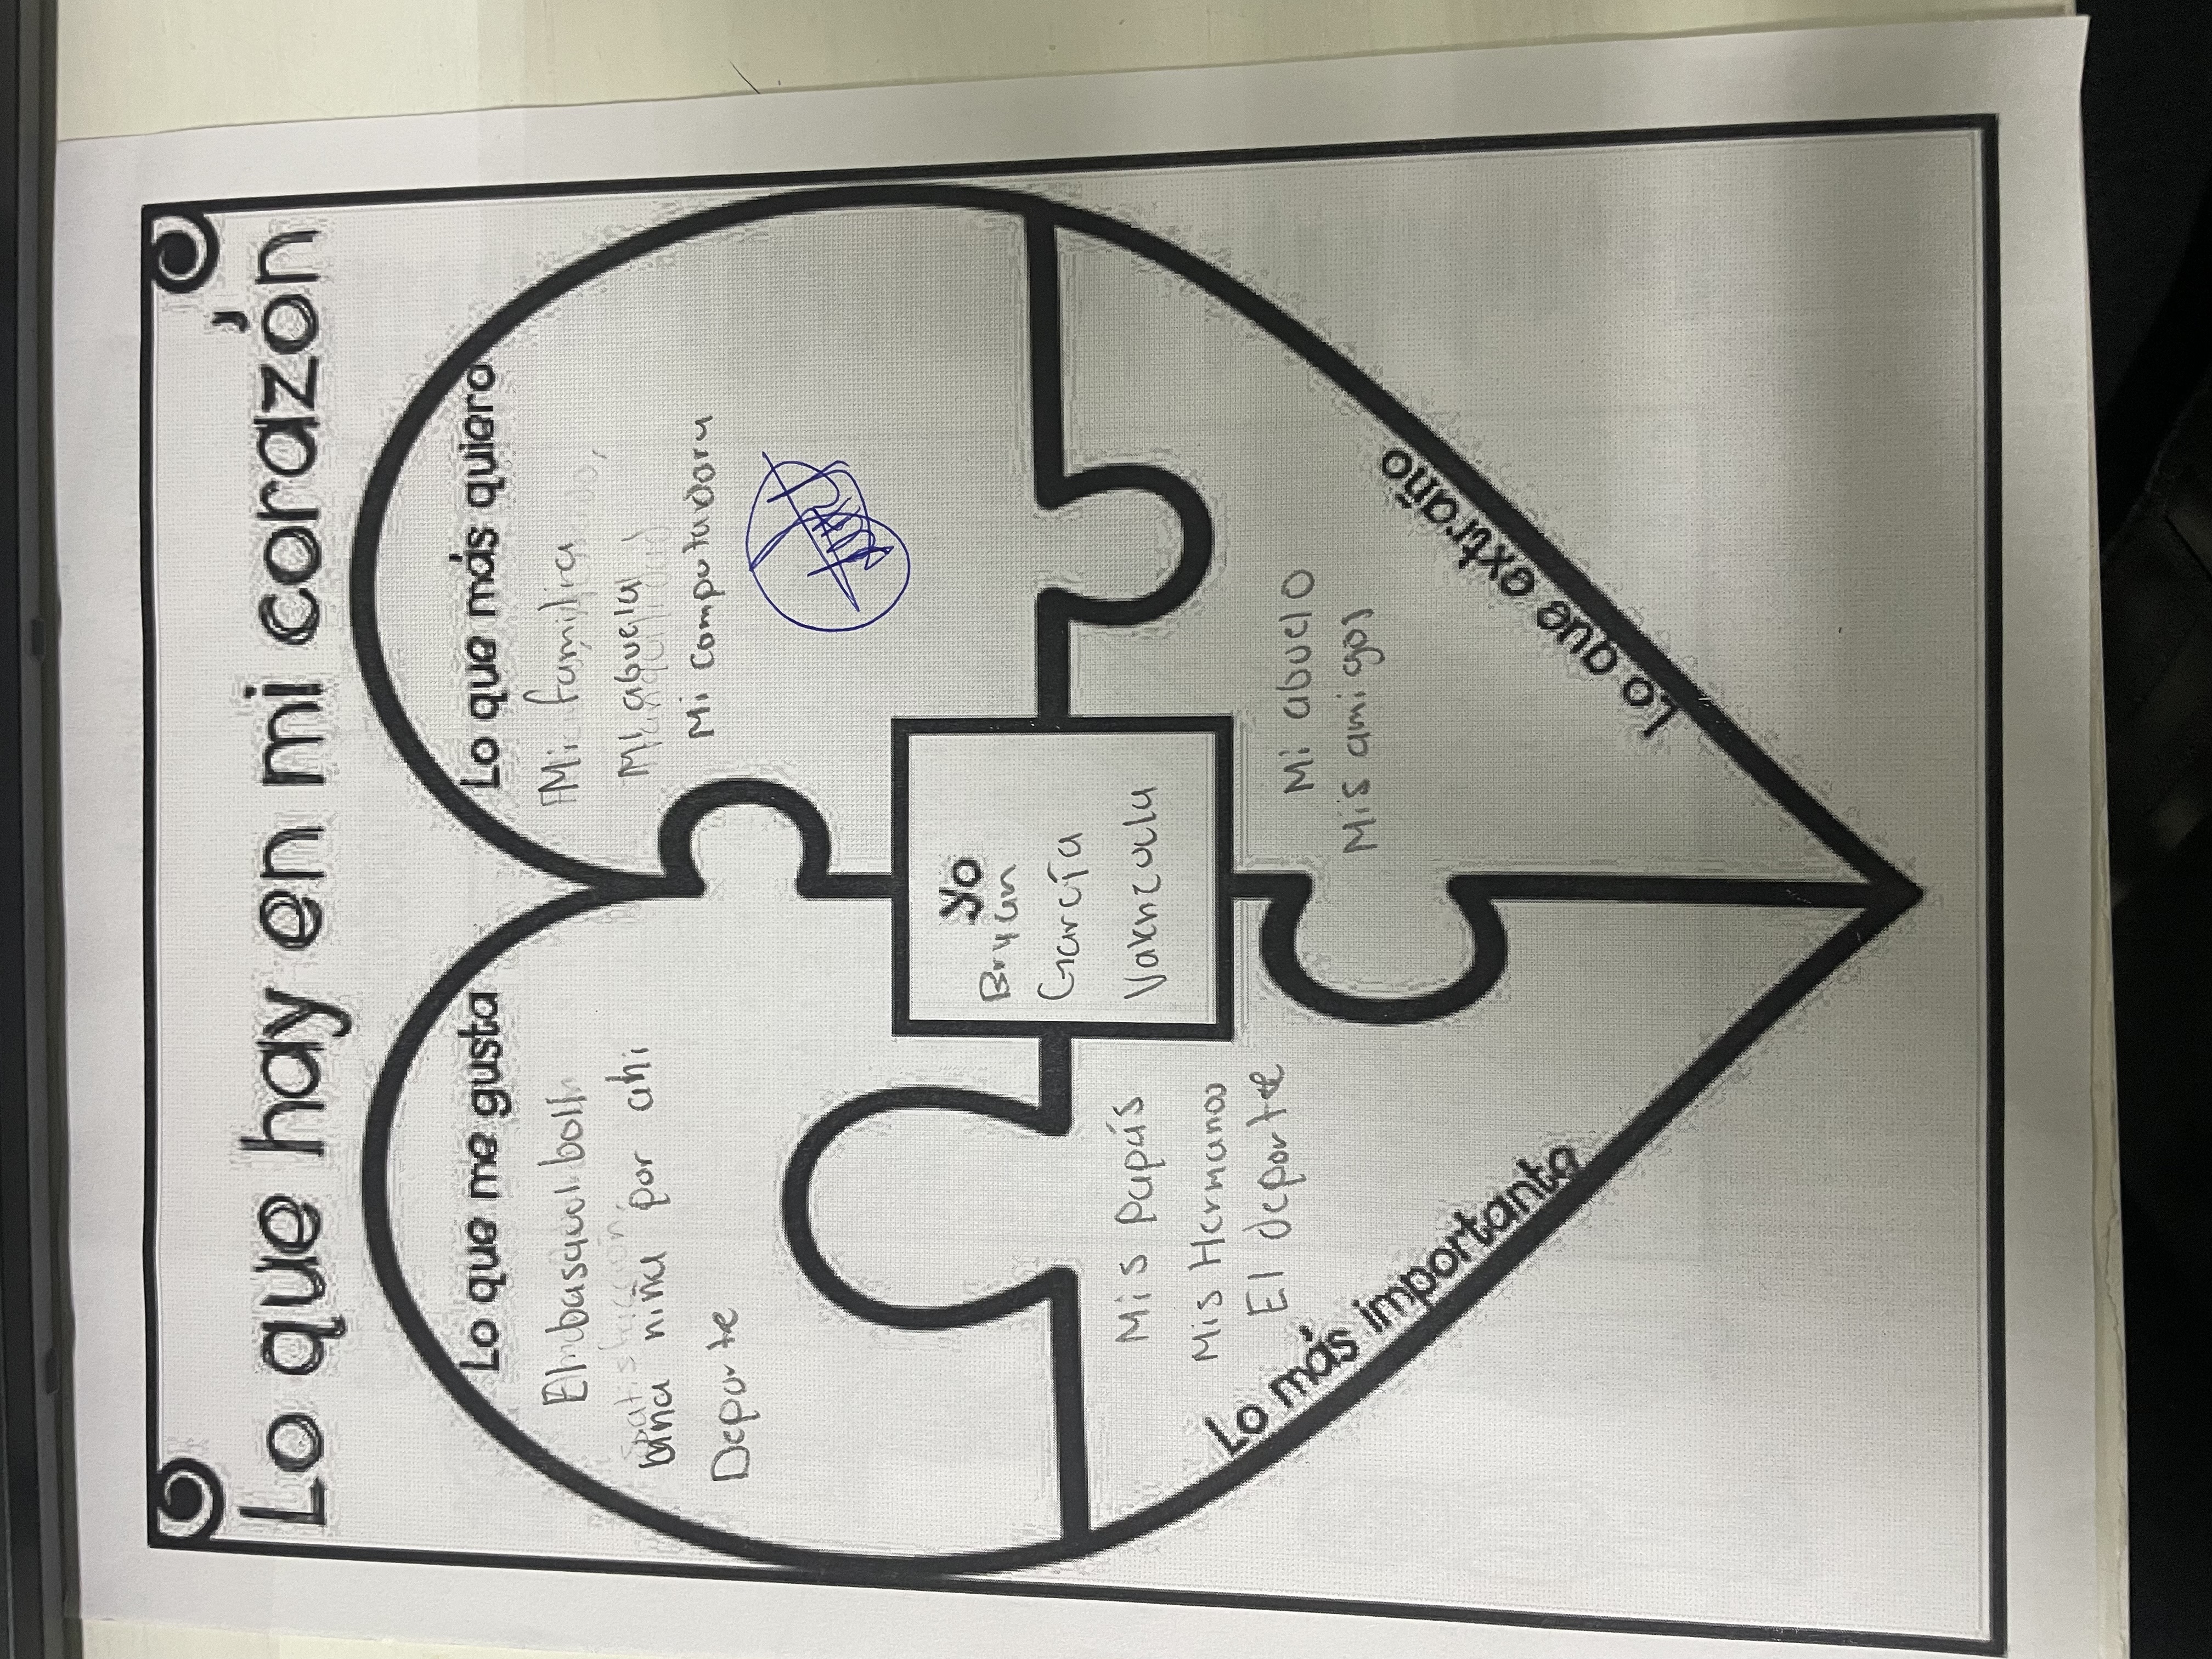 Lo que hay en mi corazón
Lo que me gusta
El basquilboll
una niña por ahi
Deporte
Lo que más quiero
Mi familia
Mi abuela
Mi computadora
yo
Bryan
García
Lo más importante
Mis papás
Mis Hermanos
El deporte
Lo que extraño
Mi abuelo
Mis amigos